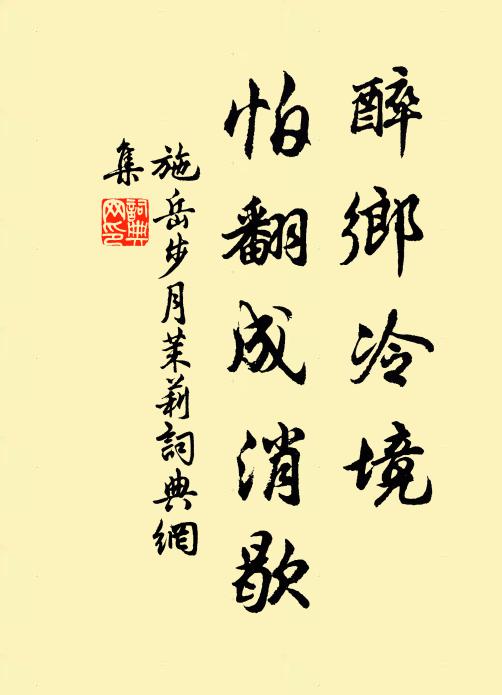 醉鄉冷境
怕翻成消歇
施岳步月茉莉詞典網
集
詞典網印